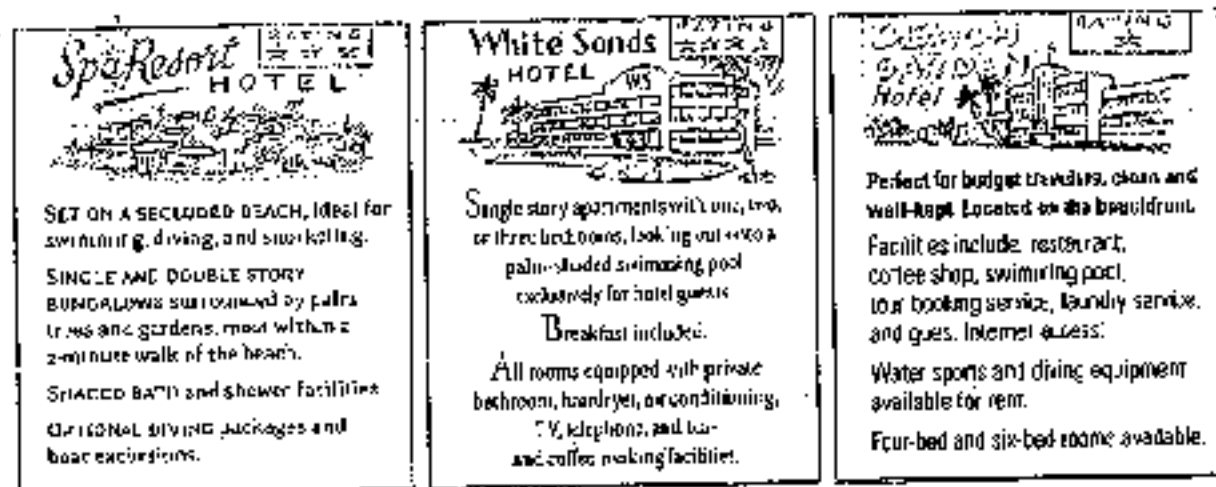 Spa Resort
HOTEL
RATING
SET ON A SECLUDED BEACH, Ideal for
swimming, diving, and snorkeling.
SINGLE AND DOUBLE STORY
BUNGALOWS surrounded by palm
trees and gardens, most within a
2-minute walk of the beach.
SHARED BATH and shower facilities
OPTIONAL DIVING packages and
boat excursions.
White Sands
HOTEL
RATING
WS
Single story apartments with one, two,
or three bedrooms, looking out onto a
palm-shaded swimming pool
exclusively for hotel guests
Breakfast included.
All rooms equipped with private
bathroom, hairdryer, air conditioning,
TV, telephone, and tea-
and coffee making facilities.
Hotel
RATING
Perfect for budget travelers, clean and
well-kept. Located on the beachfront.
Facilities include restaurant,
coffee shop, swimming pool,
tour booking service, laundry service,
and guest Internet access.
Water sports and diving equipment
available for rent.
Four-bed and six-bed rooms available.